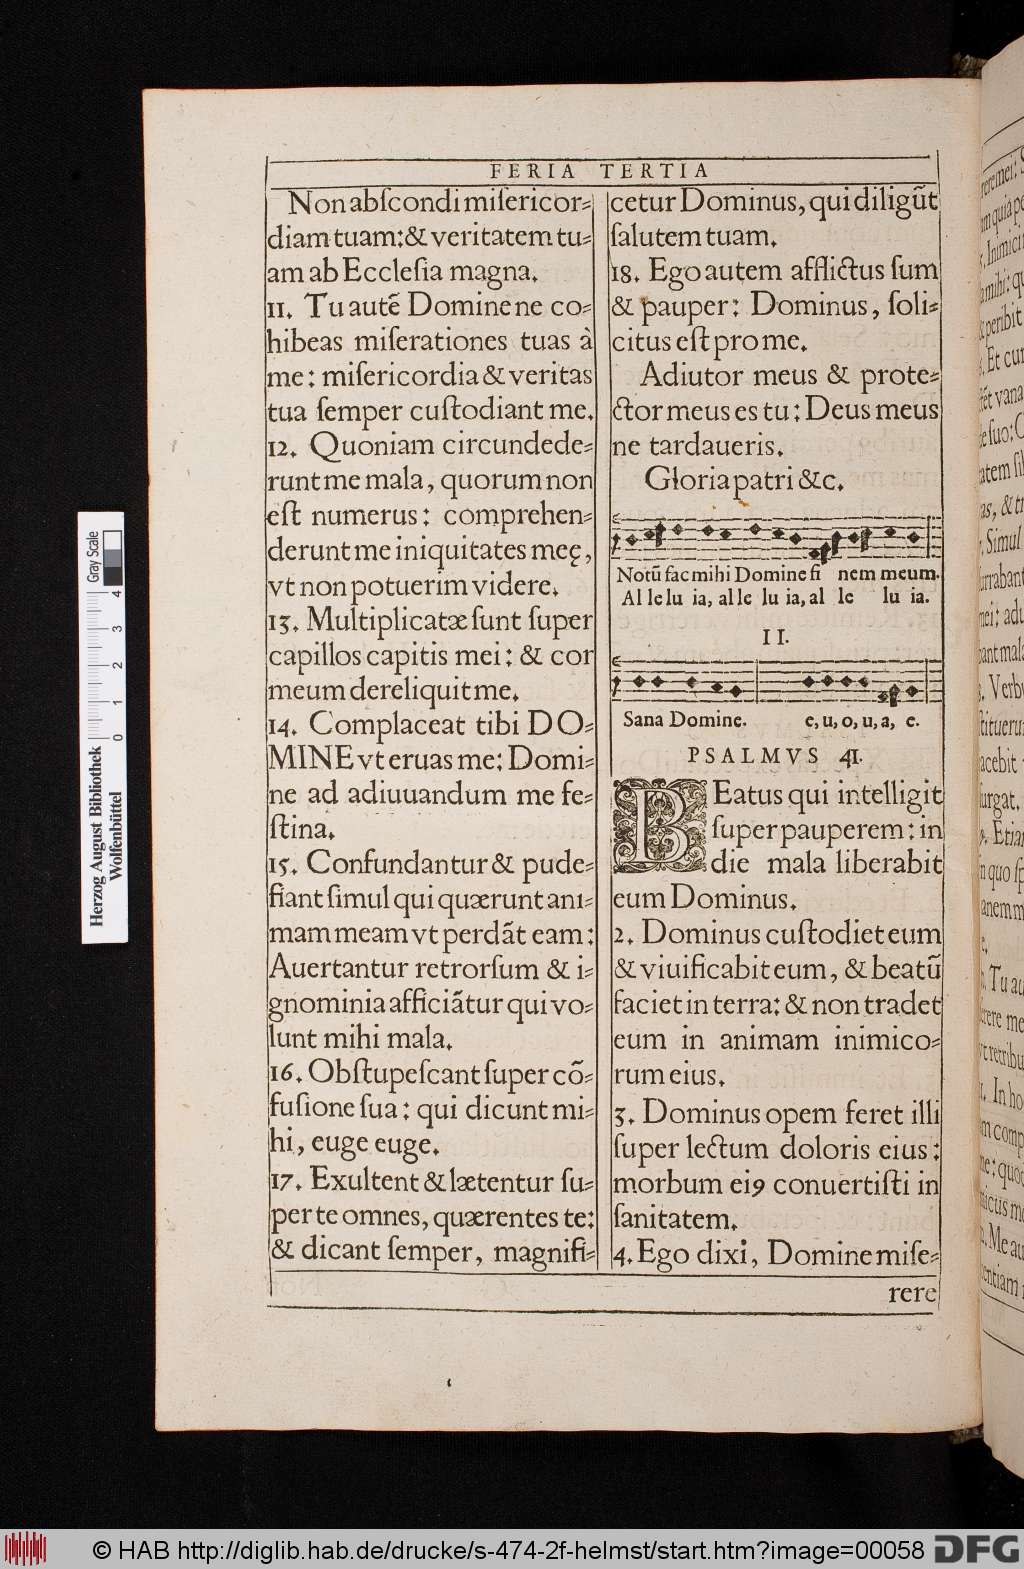 FERIA TERTIA
Non abſcondi miſericor⸗
diam tuam: & veritatem tu⸗
am ab Eccleſia magna.
11. Tu autē Domine ne co⸗
hibeas miſerationes tuas à
me: miſericordia & veritas
tua ſemper cuſtodiant me.
12. Quoniam circundede⸗
runt me mala, quorum non
eſt numerus: comprehen⸗
derunt me iniquitates meę,
vt non potuerim videre.
13. Multiplicatæ ſunt ſuper
capillos capitis mei: & cor
meum dereliquit me.
14. Complaceat tibi DO⸗
MINE vt eruas me: Domi⸗
ne ad adiuuandum me fe⸗
ſtina.
15. Confundantur & pude⸗
fiant ſimul qui quærunt ani⸗
mam meam vt perdāt eam:
Auertantur retrorſum & i⸗
gnominia afficiātur qui vo⸗
lunt mihi mala.
16. Obſtupeſcant ſuper cō⸗
fuſione ſua: qui dicunt mi⸗
hi, euge euge.
17. Exultent & lætentur ſu⸗
per te omnes, quærentes te:
& dicant ſemper, magnifi⸗
cetur Dominus, qui diligūt
ſalutem tuam.
18. Ego autem afflictus ſum
& pauper: Dominus, ſoli⸗
citus eſt pro me.
Adiutor meus & prote⸗
ctor meus es tu: Deus meus
ne tardaueris.
Gloria patri &c.
Notū fac mihi Domine fi nem meum.
Al le lu ia, al le lu ia, al le lu ia.
II.
Sana Domine. e, u, o, u, a, e.
PSALMVS 41.
BEatus qui intelligit
ſuper pauperem: in
die mala liberabit
eum Dominus.
2. Dominus cuſtodiet eum
& viuificabit eum, & beatū
faciet in terra: & non tradet
eum in animam inimico⸗
rum eius.
3. Dominus opem feret illi
ſuper lectum doloris eius:
morbum ei9 conuertiſti in
ſanitatem.
4. Ego dixi, Domine miſe⸗
rere
Gray Scale
0 1 2 3 4
Herzog August Bibliothek
Wolfenbüttel
© HAB http://diglib.hab.de/drucke/s-474-2f-helmst/start.htm?image=00058
DFG